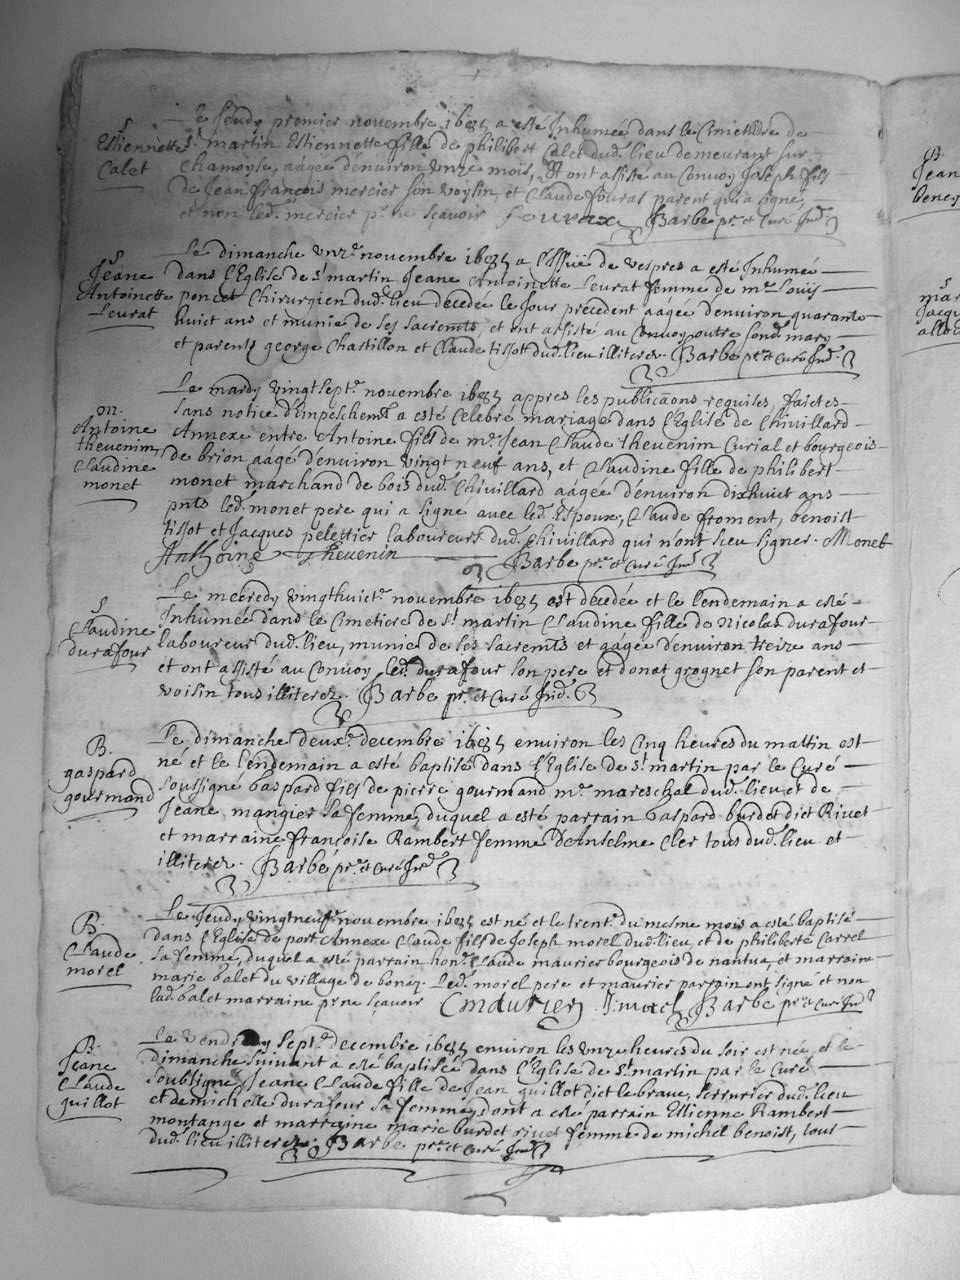 S
Estiennette
Calet
Le Jeudy premier novembre 1685 a esté Inhumée dans le Cimetiere de
St martin Estiennette fille de philibert Calet dud. lieu demeurant sur
Chamoyse, aagée d'environ unze mois, Et ont assisté au Convoy Joseph fils
de Jean françois mercier son voysin, et Claude fouras parent qui a signé,
et non led. mercier pr ne sçavoir fouras Barbe pr. et Curé Ind.
S
Jeane
Antoinette
Leurat
Le dimanche unze novembre 1685 a l'issüe de vespres a esté Inhumé
dans l'Eglise de St martin Jeane Antoinette Leurat femme de mre Louis
poncet Chirurgien dud. lieu decedée le Jour precedent aagée d'environ quarante
huict ans et munie de ses sacremts, et ont assisté au Convoy outre sond. mary
et parents george Chastillon et Claude tissot dud. lieu illiterez. Barbe pr. et Curé Ind.
m.
Antoine
thevenim
Claudine
monet
Le mardy vingtsept. novembre 1685 appres les publicãons requises, faictes
sans notice d'Impeschemt a esté Celebré mariage dans l'Eglise de Chivillard
Annexe entre Antoine fils de mre Jean Claude thevenim Curial et bourgeois
de brion aagé d'environ vingt neuf ans, et Claudine fille de philibert
monet marchand de bois dud. Chivillard aagée d'environ dixhuict ans
pnts led. monet pere qui a signé avec led. Espoux, Claude froment, benoist
tissot et Jacques peletier laboureurs dud. Chivillard qui n'ont sceu signer. Monet
Anthoine Thevenin Barbe pr. et Curé Ind.
S
Claudine
durafour
Le mecredy vingthuict. novembre 1685 est decedée et le lendemain a esté
Inhumée dans le Cimetiere de St. martin Claudine fille de Nicolas durafour
laboureur dud. lieu, munie de ses sacremts et aagée d'environ treize ans
et ont assisté au Convoy led. durafour son pere et donat grognet son parent et
voisin tous illiterez. Barbe pr. et Curé Ind.
B.
gaspard
gourmand
Le dimanche deux. decembre 1685 environ les Cinq heures du mattin est
né et le lendemain a esté baptisé dans l'Eglise de St. martin par le Curé
soussigné Gaspard fils de pierre gourmand mre mareschal dud. lieu et de
Jeane mangier sa femme, duquel a esté parrain Gaspard burdet dict Rivet
et marraine françoise Rambert femme d'Anselme Cler tous dud. lieu et
illiterez. Barbe pr. et Curé Ind.
B
Claude
morel
Le Jeudy vingtneuf. novembre 1685 est né et le trent. du mesme mois a esté baptisé
dans l'Eglise de port Annexe Claude fils de Joseph morel dud. lieu, et de philiberte Carrel
sa femme, duquel a esté parrain hon. Claude maurier bourgeois de nantua, et marraine
marie balet du village de bonaz. Led. morel pere et maurier parrain ont signé et non
lad. balet marraine pr ne sçavoir Cmaurier J. morel Barbe pr et Curé Ind.
B.
Jeane
Claude
guillot
Le Vendredy sept. decembre 1685 environ les unze heures du soir est née, et le
dimanche suivant a esté baptisée dans l'Eglise de St. martin par le Curé
soubsigné Jeane Claude fille de Jean guillot dict le brave, serrurier dud. lieu
et de michelle durafour sa femme, dont a esté parrain Estienne Rambert
montange et marraine marie burdet rivet femme de michel benoist, tous
dud. lieu illiterez. Barbe pr. et Curé Ind.
B
Jean
S